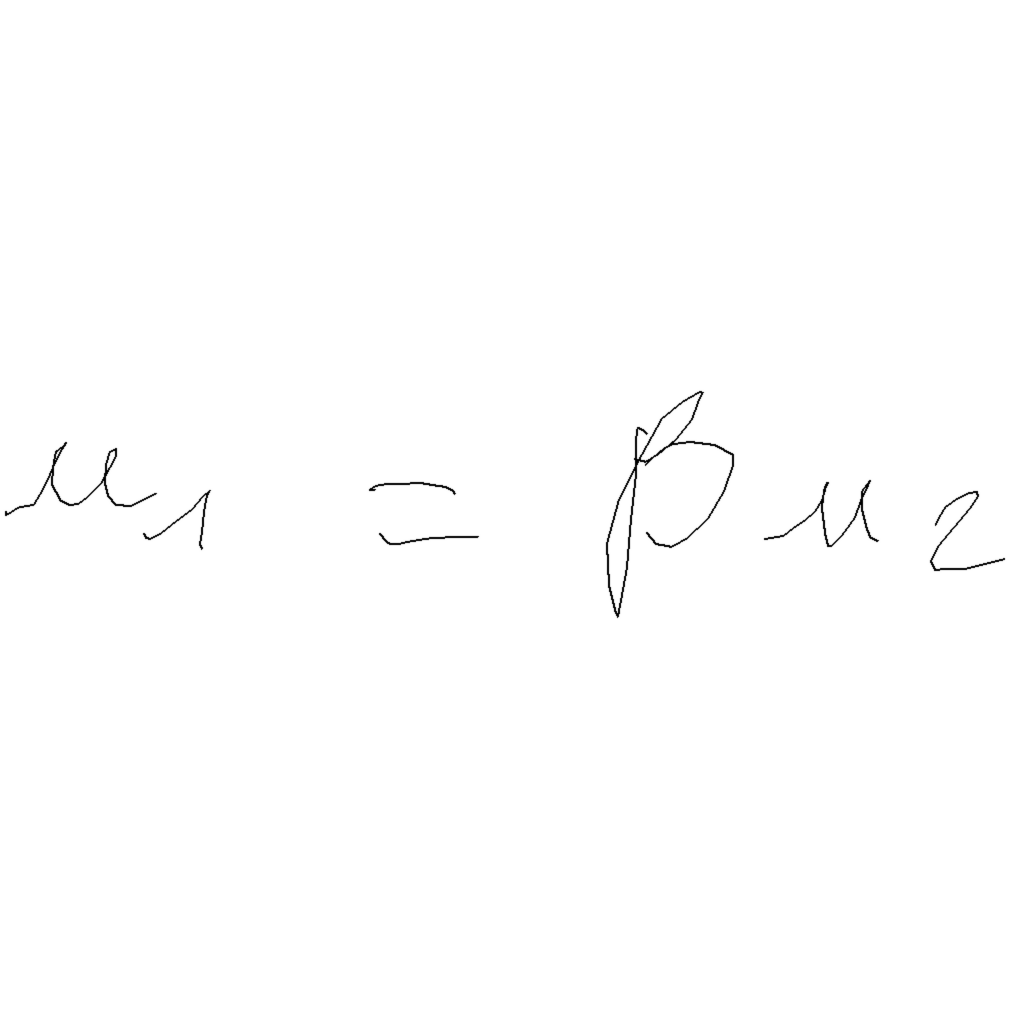 u₁ = βu₂